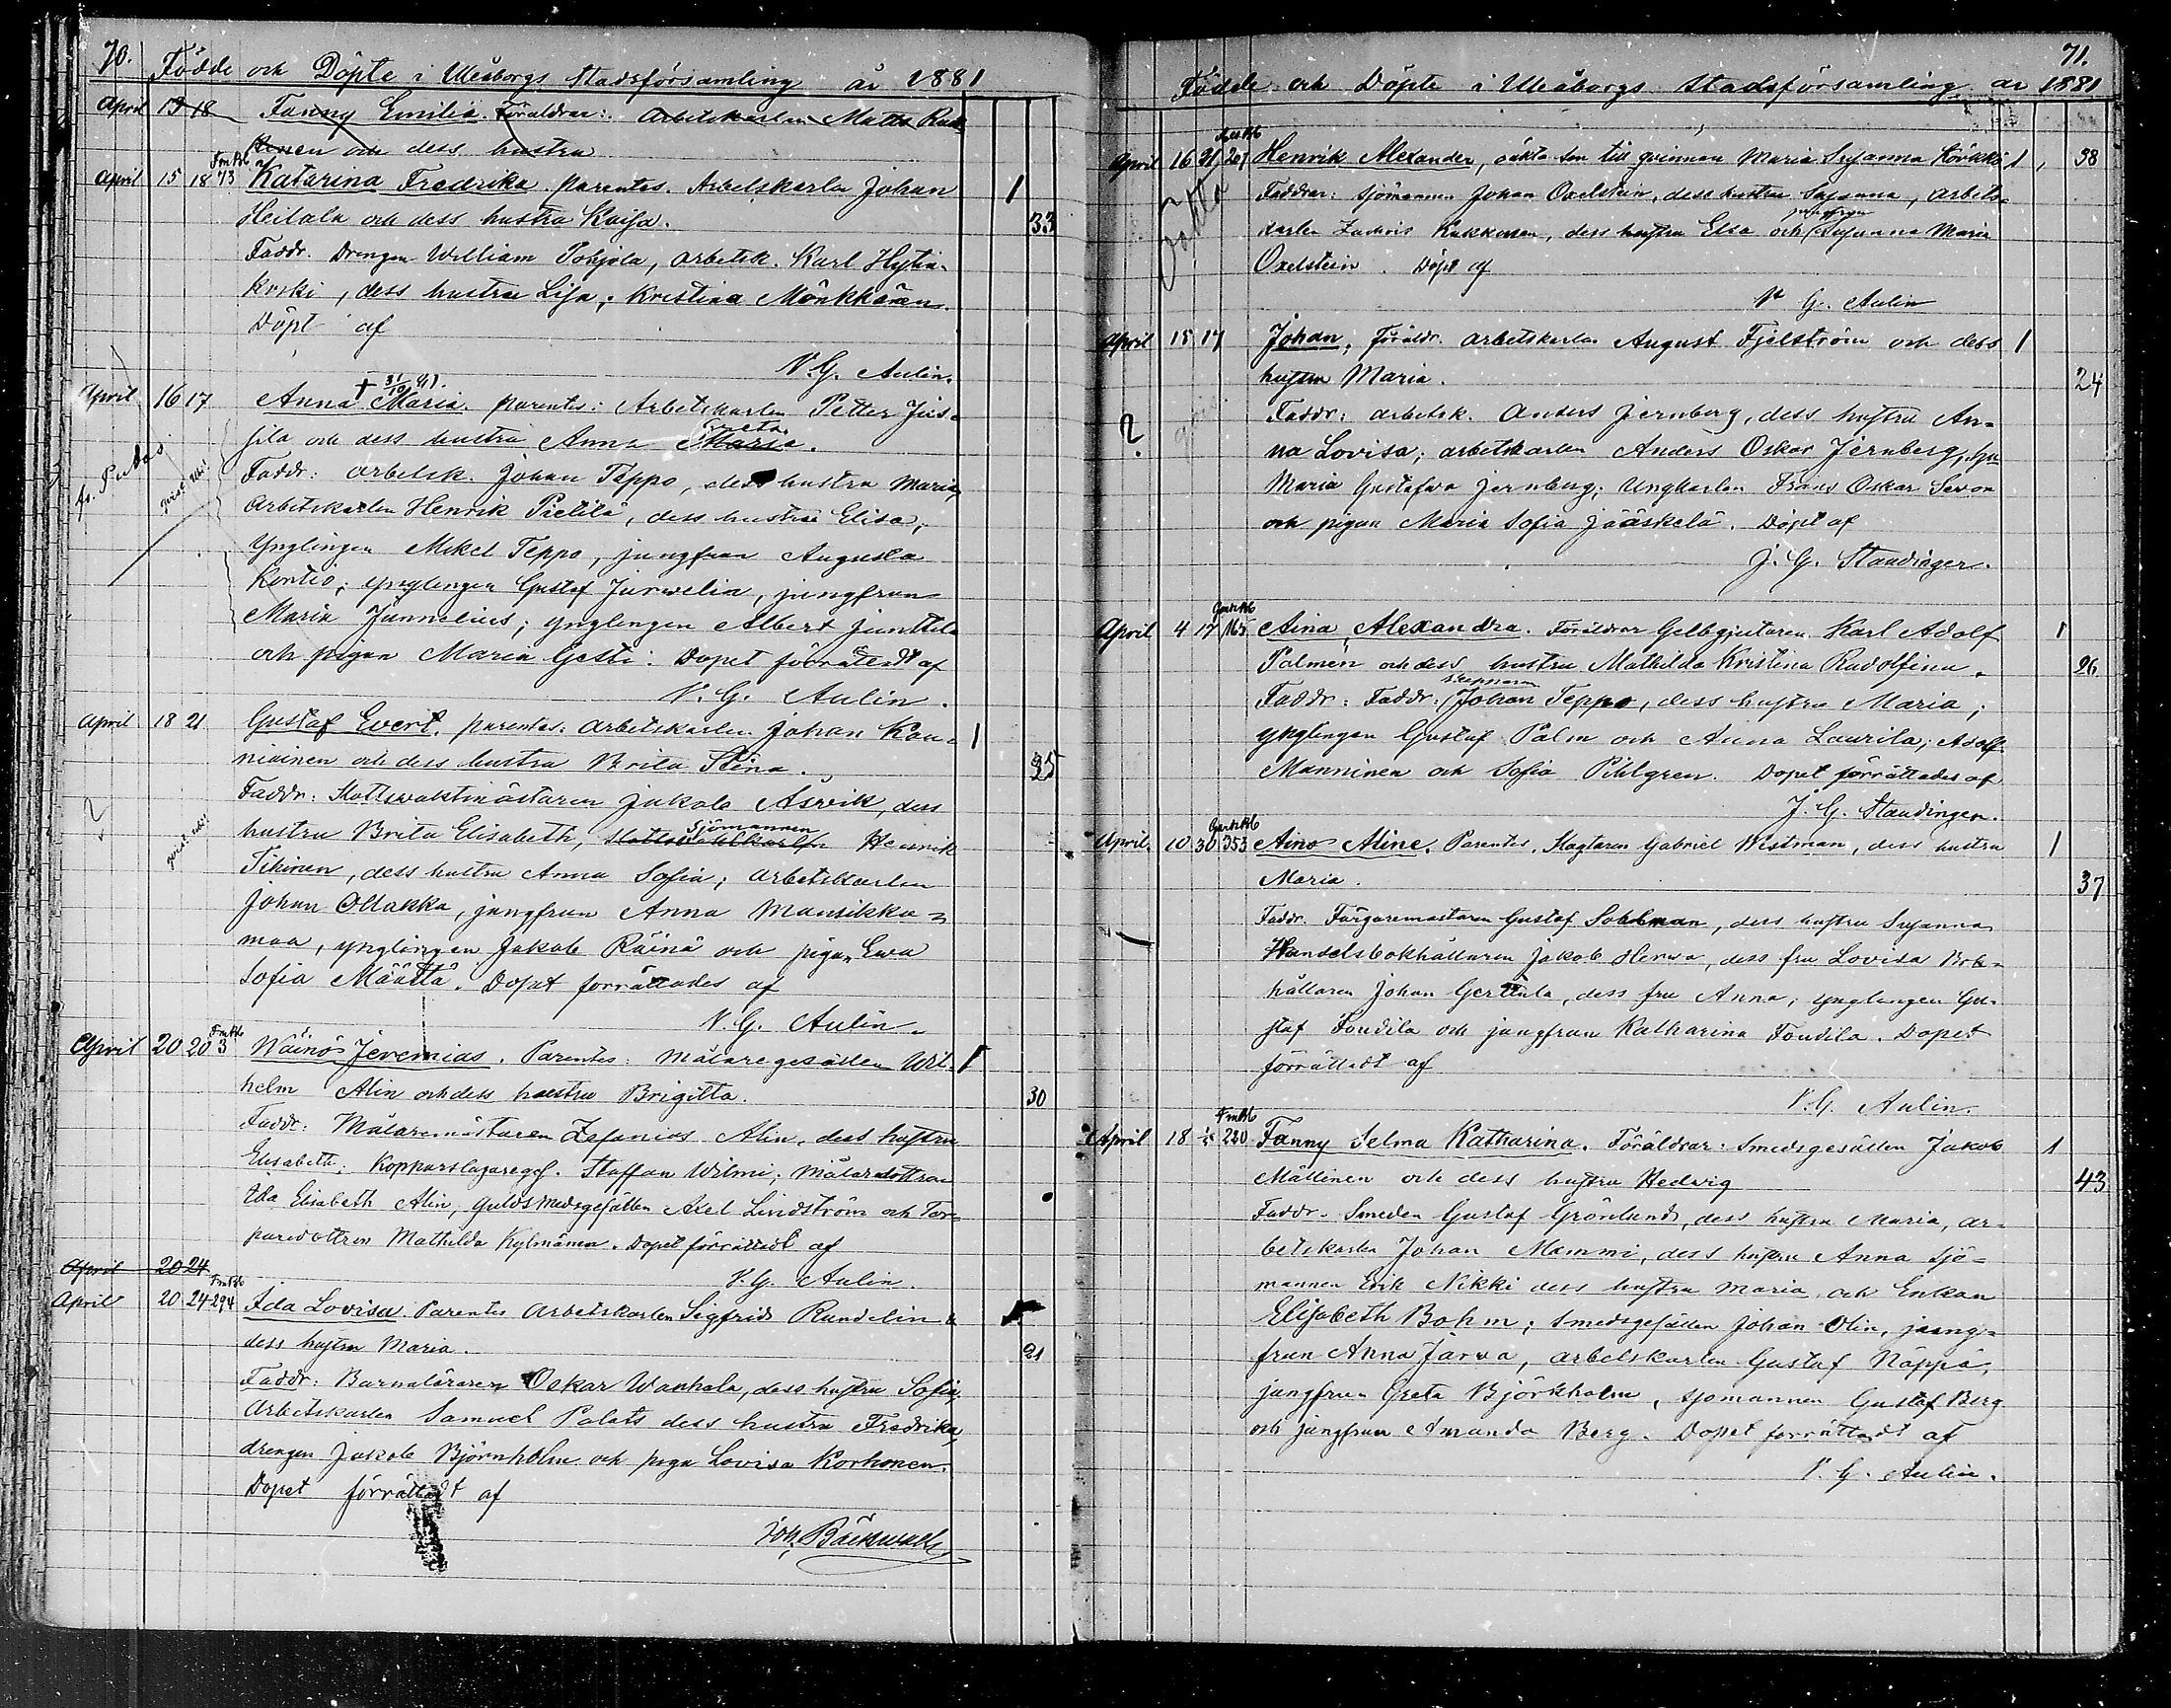 70.
Födde och Döpte i Uleåborgs Stadsförsamling år 1881
April 15 18 Fanny Emilia. Föräldrar: Arbetskarlen Matts
och dess hustru
April 15 18 73 Katarina Fredrika. parentes. Arbetskarlen Johan 1
Heitala och dess hustru Kaisa. 33
Faddr. Drengen William Pohjola, arbetsk. Karl Hyti-
koski, dess hustru Lisa, Kristina Mönkkönen.
Döpt af
V. G. Aulin.
April 16 17 Anna Maria. parentes: Arbetskarlen Petter Jus-
sila och dess hustru Anna Maria. Greta.
Faddr: arbetsk. Johan Teppo, dess hustru Maria,
arbetskarlen Henrik Pietilä, dess hustru Elisa,
Ynglingen Mikel Teppo, jungfrun Augusta
Kontio; ynglingen Gustaf Jurvelin, jungfrun
Maria Junnelius; ynglingen Albert Junttila
och pigan Maria Gesti. Dopet förrättedt af
V. G. Aulin.
April 18 21 Gustaf Evert. parentes: arbetskarlen Johan Kau- 1
niainen och dess hustru Brita Stina. 35
Faddr: Slottsvaktmästaren Jakob Asvik, dess
hustru Brita Elisabeth, sjömannen Henrik
Tihinen, dess hustru Anna Sofia; arbetskarlen
Johan Ollakka, jungfrun Anna Mansikka-
maa, ynglingen Jakob Räinä och pigan Ewa
Sofia Määttä. Dopet förrättades af
V. G. Aulin.
April 20 20 3 Wäinö Jeremias. Parentes: Målaregesällen Wil- 1
helm Alin och dess hustru Brigitta. 30
Faddr: Målaremästaren Zefanias Alin, dess hustru
Elisabeth; Kopparslagareges. Staffan Wilmi; Målaredottren
Ida Elisabeth Alin, guldsmedsgesällen Axel Lindström och Tor-
paredottren Mathilda Kylmänen. Dopet förrättedt af
April 20 24 V. G. Aulin
April 20 24 294 Ida Lovisa. Parentes Arbetskarlen Sigfrid Rundelin &
dess hustru Maria. 21
Faddr: Barnaläraren Oskar Wanhala, dess hustru Sofia,
Arbetskarlen Samuel Palats dess hustru Fredrika,
drengen Jakob Björnholm och piga Lovisa Korhonen.
Dopet förrättadt af
Joh. Bäckwall
71.
Födde och Döpte i Uleåborgs Stadsförsamling år 1881
April 16 31 201 Henrik Alexander, oäkta son till qvinnan Maria Susanna 1 38
oäkta
Faddrar: sjömannen Johan Oxelstein, dess hustru Susanna, arbets-
karlen Zachris Kukkonen, dess hustru Elsa och jungfrun Susanna Maria
Oxelstein. Döpt af
V. G. Aulin
April 15 17 Johan, Föräldr. arbetskarlen August Fjelström och dess 1
hustru Maria. 24
? Faddr: arbetsk. Anders Jernberg, dess hustru An-
na Lovisa; arbetskarlen Anders Oskar Jernberg,
Maria Gustafva Jernberg; Ungkarlen Frans Oskar Sevon
och pigan Maria Sofia Jääskelä. Döpt af
J. G. Standinger.
April 4 17 165 Aina Alexandra. Föräldrar Gelbgjutaren Karl Adolf 1
Palmén och dess hustru Mathilda Kristina Rudolfina. 26
Faddr: Faddr: skepparen Johan Teppo, dess hustru Maria;
ynglingen Gustaf Palm och Anna Laurila; Adolf
Manninen och Sofia Pihlgren. Dopet förrättades af
J. G. Standinger.
April 10 30 353 Aino Aline. Parentes. Slagtaren Gabriel Westman, dess hustru 1
Maria. 37
Faddr. Färgaremästaren Gustaf Sohlman, dess hustru Susanna,
Handelsbokhållaren Jakob Herva, dess fru Lovisa Bok-
hållaren Johan Gerttula, dess fru Anna, ynglingen Gu-
staf Toudila och jungfrun Katharina Toudila. Dopet
förrättadt af
V. G. Aulin.
April 18 1/5 220 Fanny Selma Katharina. Föräldrar: Smedsgesällen Jakob 1
Mällinen och dess hustru Hedvig 43
Faddr. Smeden Gustaf Grönlund, dess hustru Maria, ar-
betskarlen Johan Mammi, dess hustru Anna sjö-
mannen Erik Nikki dess hustru Maria och Enkan
Elisabeth Bohm; smedsgesällen Johan Olin, jung-
frun Anna Jarva, arbetskarlen Gustaf Näppä,
jungfrun Greta Björkholm, sjömannen Gustaf Berg
och jungfrun Amanda Berg. Dopet förrättadt af
V. G. Aulin.